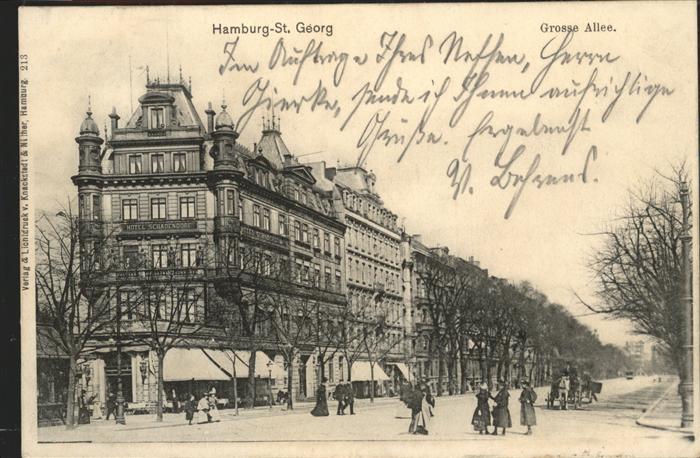 Hamburg-St. Georg
Grosse Allee.
Im Auftrage Ihres Neffen, Herrn
Gierke, sende ich Ihnen aufrichtige
Grüße. Ergebenst
V. Behrens.
HOTEL SCHADENDORF
Verlag & Lichtdruck v. Knackstedt & Näther, Hamburg. 213